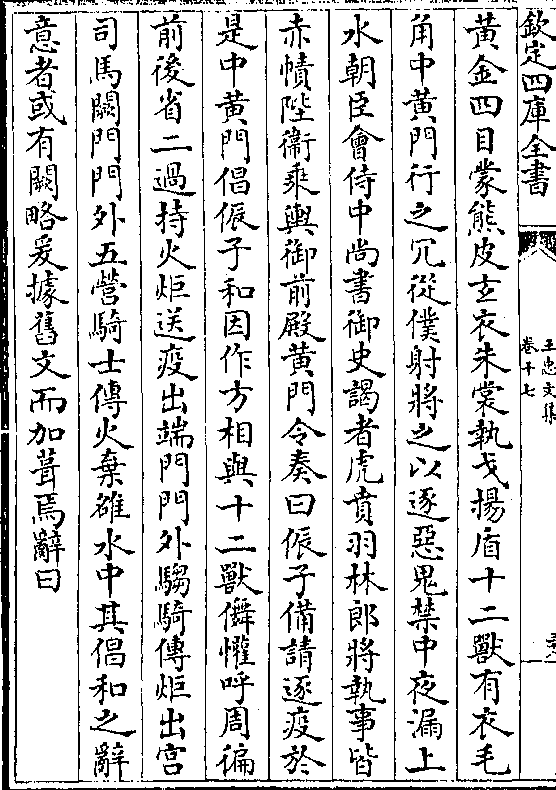 欽定四庫全書
王忠文集
卷十七
黃金四目蒙熊皮𤣥衣朱裳執戈揚盾十二獸有衣毛
角中黃門行之冗從僕射將之以逐惡鬼禁中夜漏上
水朝臣會侍中尚書御史謁者虎賁羽林郎將執事皆
赤幘陛衞乘輿御前殿黃門令奏曰侲子備請逐疫於
是中黃門倡侲子和因作方相與十二獸儛懽呼周徧
前後省二過持火炬送疫出端門門外騶騎傳炬出宫
司馬闕門門外五營騎士傳火棄雒水中其倡和之辭
意者或有闕略爰據舊文而加葺焉辭曰